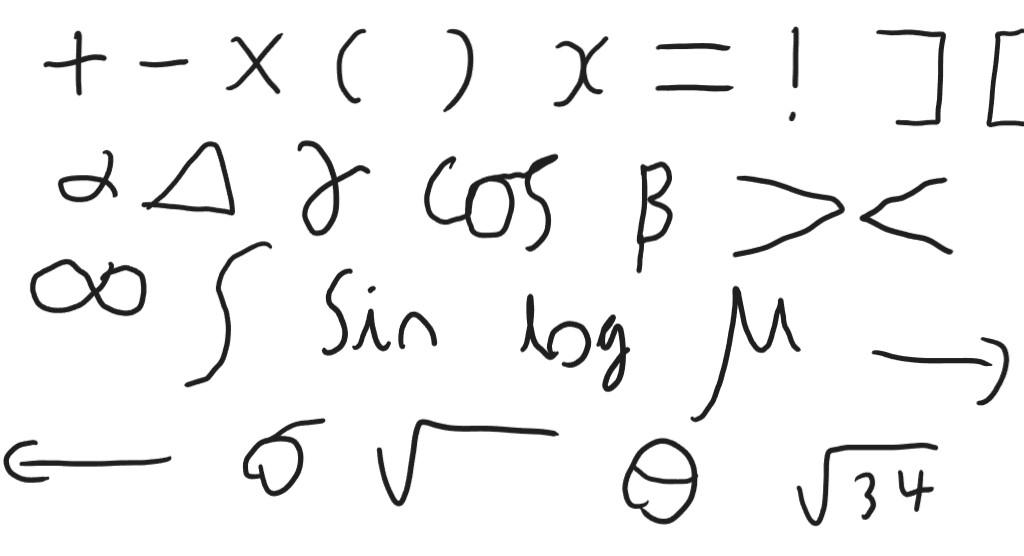 + - × ( ) x = ! ] [
α Δ γ cos β > <
∞ ∫ sin log μ →
← σ √ θ √34